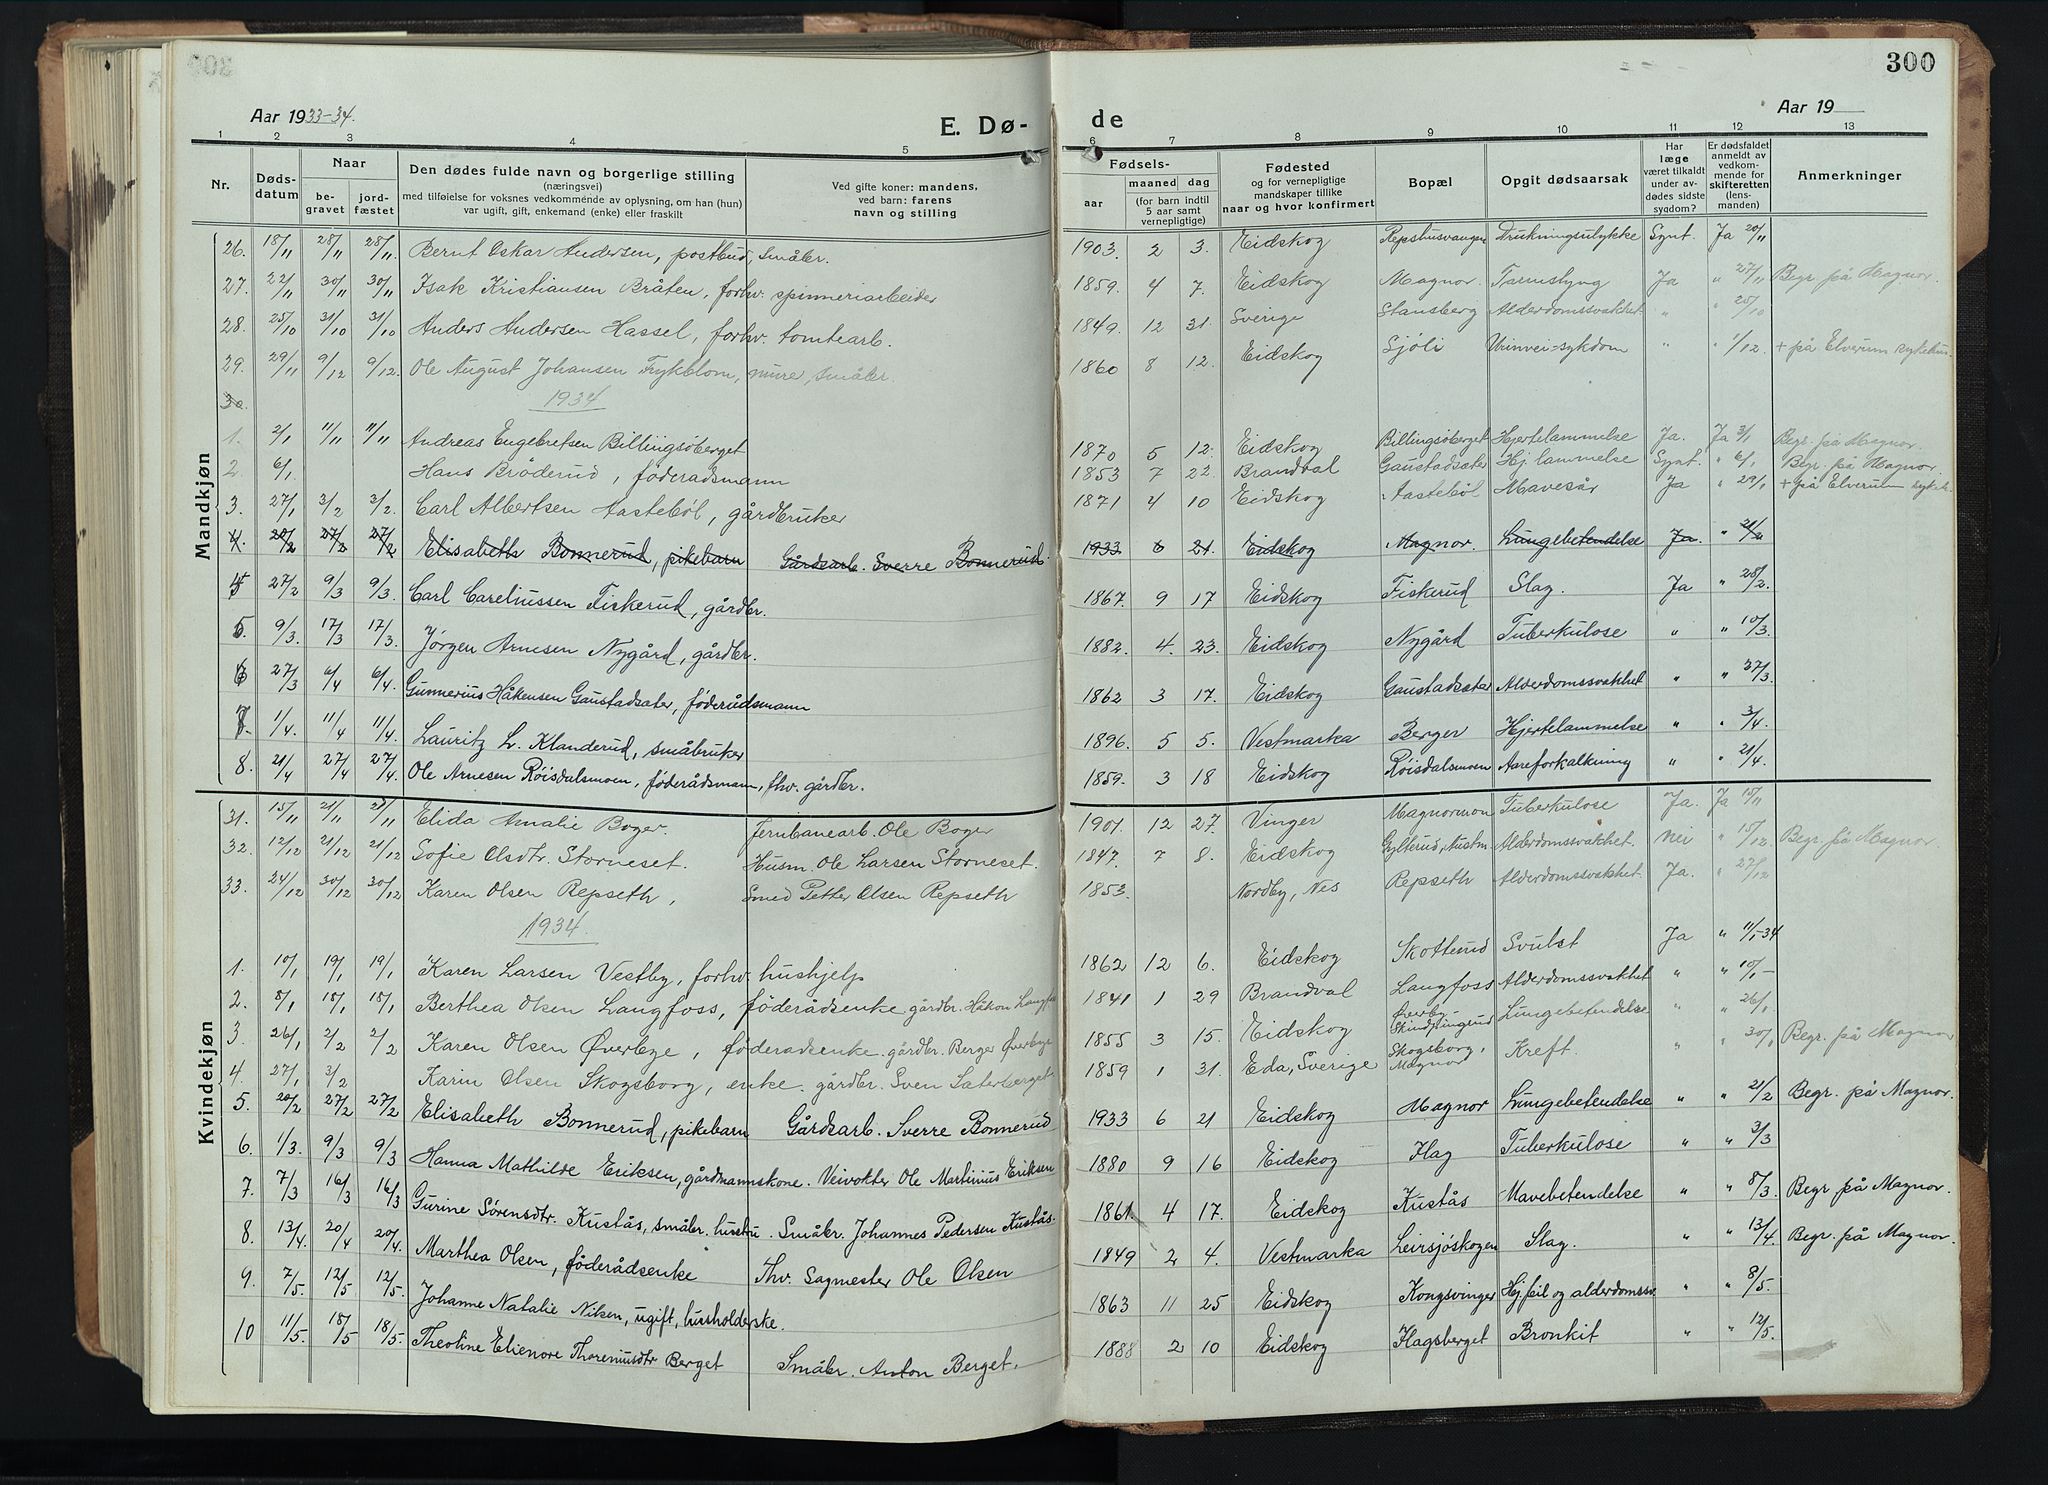 300
Aar 1933-34.
E. Dø-
de
Aar 19
1 2 3 4 5 6 7 8 9 10 11 12 13
Nr.
Døds-datum
Naar
be-gravet
jord-fæstet
Den dødes fulde navn og borgerlige stilling
(næringsvei)
med tilføielse for voksnes vedkommende av oplysning, om han (hun)
var ugift, gift, enkemand (enke) eller fraskilt
Ved gifte koner: mandens,
ved barn: farens
navn og stilling
Fødsels-
aar
maaned
dag
(for barn indtil
5 aar samt
vernepligtige)
Fødested
og for vernepligtige
mandskaper tillike
naar og hvor konfirmert
Bopæl
Opgit dødsaarsak
Har
læge
været tilkaldt
under av-
dødes sidste
sygdom?
Er dødsfaldet
anmeldt av
vedkom-
mende for
skifteretten
(lens-
manden)
Anmerkninger
Mandkjøn
26. 18/11 28/11 28/11 Bernt Oskar Andersen, postbud, småbr. 1903. 2 3. Eidskog Repshusvangen Drukningsulykke Synt. Ja 20/11
27. 22/11 30/11 30/11 Isak Kristiansen Bråten, forhv. spinneriarbeider 1859. 4 7. Eidskog Magnor. Tarmslyng Ja " 27/11 Begr. på Magnor.
28. 25/10 31/10 31/10 Anders Andersen Hassel, forhv. tomtearb. 1849. 12 31. Sverige Stansberg Alderdomssvakhet. " " 25/10
29. 29/11 9/12 9/12. Ole August Johansen Frykblom, murer, småbr. 1860 8 12. Eidskog Sjöli Urinvei-sykdom " " 1/12. + på Elverum sykehus.
30.
1934
1. 2/1 11/11 11/11 Andreas Engebretsen Billingsöberget 1870 5 12. Eidskog Billingsöberget Hjertelammelse Ja. Ja 3/1 Begr. på Magnor.
2 6/1 Hans Bröderud, föderadsmann 1853 7 22. Brandval Gaustadsæter Hj. lammelse Synt. " 6/1 Begr. på Magnor.
3. 27/1 3/2 3/2. Carl Albertsen Aastebøl, gårdbruker 1871 4 10 Eidskog Aastebøl Mavesår Ja " 29/1 + på Elverum sykeh.
4. 20/2 27/2 27/2 Elisabeth Bonnerud, pikebarn Gårdsarb. Sverre Bonnerud. 1933 6 21. Eidskog Magnor. Lungebetendelse Ja. " 21/2
4 27/2 9/3 9/3. Carl Careliussen Fiskerud, gårdbr. 1867. 9 17 Eidskog Fiskerud Slag. Ja " 28/2.
5. 9/3. 17/3 17/3. Jørgen Arnesen Nygård, gårdbr. 1882. 4. 23. Eidskog Nygård Tuberkulose " " 10/3.
6 27/3 6/4 6/4. Gunnerius Håkensen Gaustadsater, föderådsmann 1862 3 17. Eidskog Gaustadsæter Alderdomssvakhet " " 27/3.
7. 1/4. 11/4 11/4. Lauritz L. Klanderud, småbruker 1896. 5 5. Vestmarka Berger Hjertelammelse " " 3/4.
8. 21/4 27/4 27/4. Ole Arnesen Röisdalsmoen, föderådsmann, fhv. gårdbr. 1859. 3 18 Eidskog Röisdalsmoen Aareforkalkning " " 21/4.
Kvindekjøn
31. 15/11 21/11 21/11 Elida Amalie Boger. Jernbanearb. Ole Boger 1901. 12 27. Vinger Magnormon Tuberkulose Ja. Ja 15/11
32. 12/12 21/12 21/12 Sofie Olsdtr. Storneset. Husm. Ole Larsen Storneset. 1847. 7 8. Eidskog Gylterud, Austm. Alderdomssvakhet. Nei " 15/12 Begr. på Magnor.
33. 24/12 30/12 30/12 Karen Olsen Repseth, Smed Petter Olsen Repseth 1853. Nordby, Nes Repseth Alderdomssvakhet. Ja. " 27/12
1934.
1. 10/1 19/1 19/1 Karen Larsen Vestby, forhv. hushjelp 1862 12 6. Eidskog Skotterud Svulst Ja " 11/1-34
2. 8/1 15/1 15/1 Berthea Olsen Langfoss, föderådsenke gårdbr. Håkon Langfoss 1841 1 29 Brandval Langfoss Alderdomssvakhet " " 10/1-
3. 26/1 2/2 2/2 Karen Olsen Øverbye, föderadsenke. gårdbr. Berger Øverbye 1855 3 15. Eidskog Øverby- Lungebetendelse " " 26/1
4. 27/1 3/2 Karin Olsen Skogsborg, enke. gårdbr. Sven Säterberget 1859 1 31. Eda, Sverige Skogsborg, Magnor Kreft. " " 30/1 Begr. på Magnor
5. 20/2 27/2 27/2 Elisabeth Bonnerud, pikebarn Gårdsarb. Sverre Bonnerud 1933 6 21 Eidskog Magnor Lungebetendelse " " 21/2 Begr. på Magnor.
6. 1/3. 9/3 9/3 Hanna Mathilde Eriksen, gårdmannskone. Veivokter Ole Martinius Eriksen 1880 9 16 Eidskog Flag Tuberkulose " " 3/3
7. 7/3 16/3 16/3 Gurine Sørensdtr. Kustås, småbr. hustru. Småbr. Johannes Pedersen Kustås. 1861. 4 17. Eidskog Kustås Mavebetendelse " " 8/3. Begr på Magnor.
8. 13/4. 20/4 20/4. Marthea Olsen, föderådsenke Fhv. Sagmester Ole Olsen 1849 2 4. Vestmarka Leirsjöskogen Slag. " " 13/4. Begr. på Magnor.
9. 7/5. 12/5 12/5. Johanne Natalie Nilsen, ugift, husholderske. 1863 11 25 Eidskog Kongsvinger Hj. feil og alderdomssv. " " 8/5.
10 11/5. 18/5 18/5. Theoline Elienore Thoreniusdtr Berget Småbr. Anton Berget. 1888 2 10 Eidskog Flagsberget Bronkit " " 12/5.